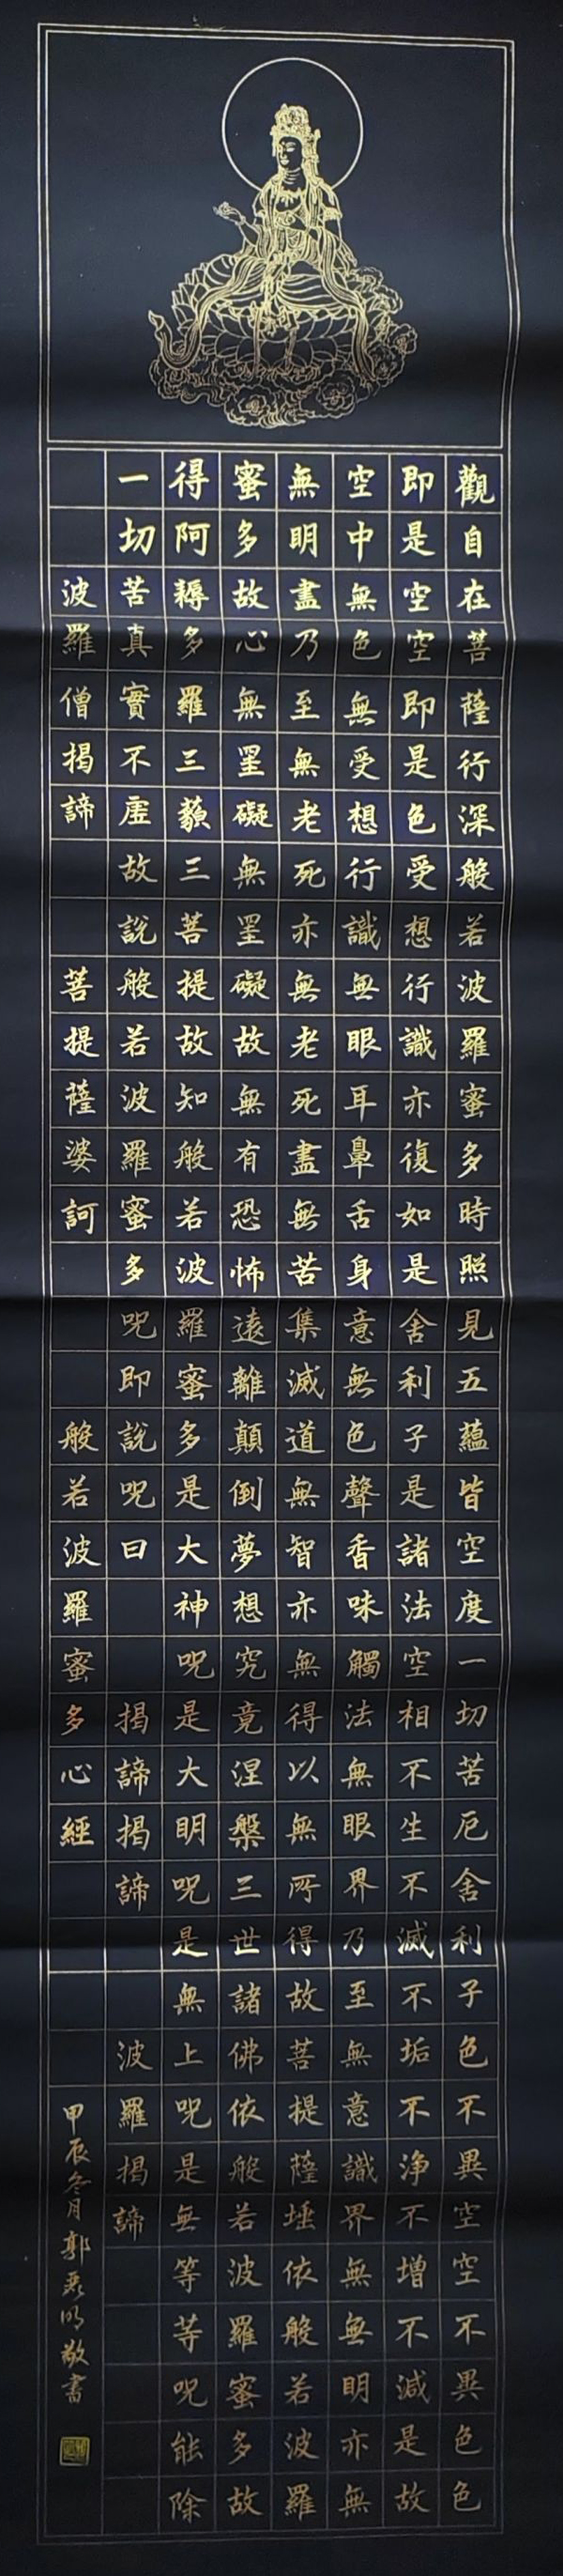 觀自在菩薩行深般若波羅蜜多時照見五蘊皆空度一切苦厄舍利子色不異空空不異色色
即是空空即是色受想行識亦復如是舍利子是諸法空相不生不滅不垢不淨不增不減是故
空中無色無受想行識無眼耳鼻舌身意無色聲香味觸法無眼界乃至無意識界無無明亦無
無明盡乃至無老死亦無老死盡無苦集滅道無智亦無得以無所得故菩提薩埵依般若波羅
蜜多故心無罣礙無罣礙故無有恐怖遠離顛倒夢想究竟涅槃三世諸佛依般若波羅蜜多故
得阿耨多羅三藐三菩提故知般若波羅蜜多是大神咒是大明咒是無上咒是無等等咒能除
一切苦真實不虛故說般若波羅蜜多咒即說咒曰 揭諦揭諦 波羅揭諦
波羅僧揭諦 菩提薩婆訶 般若波羅蜜多心經
甲辰冬月郭明敬書